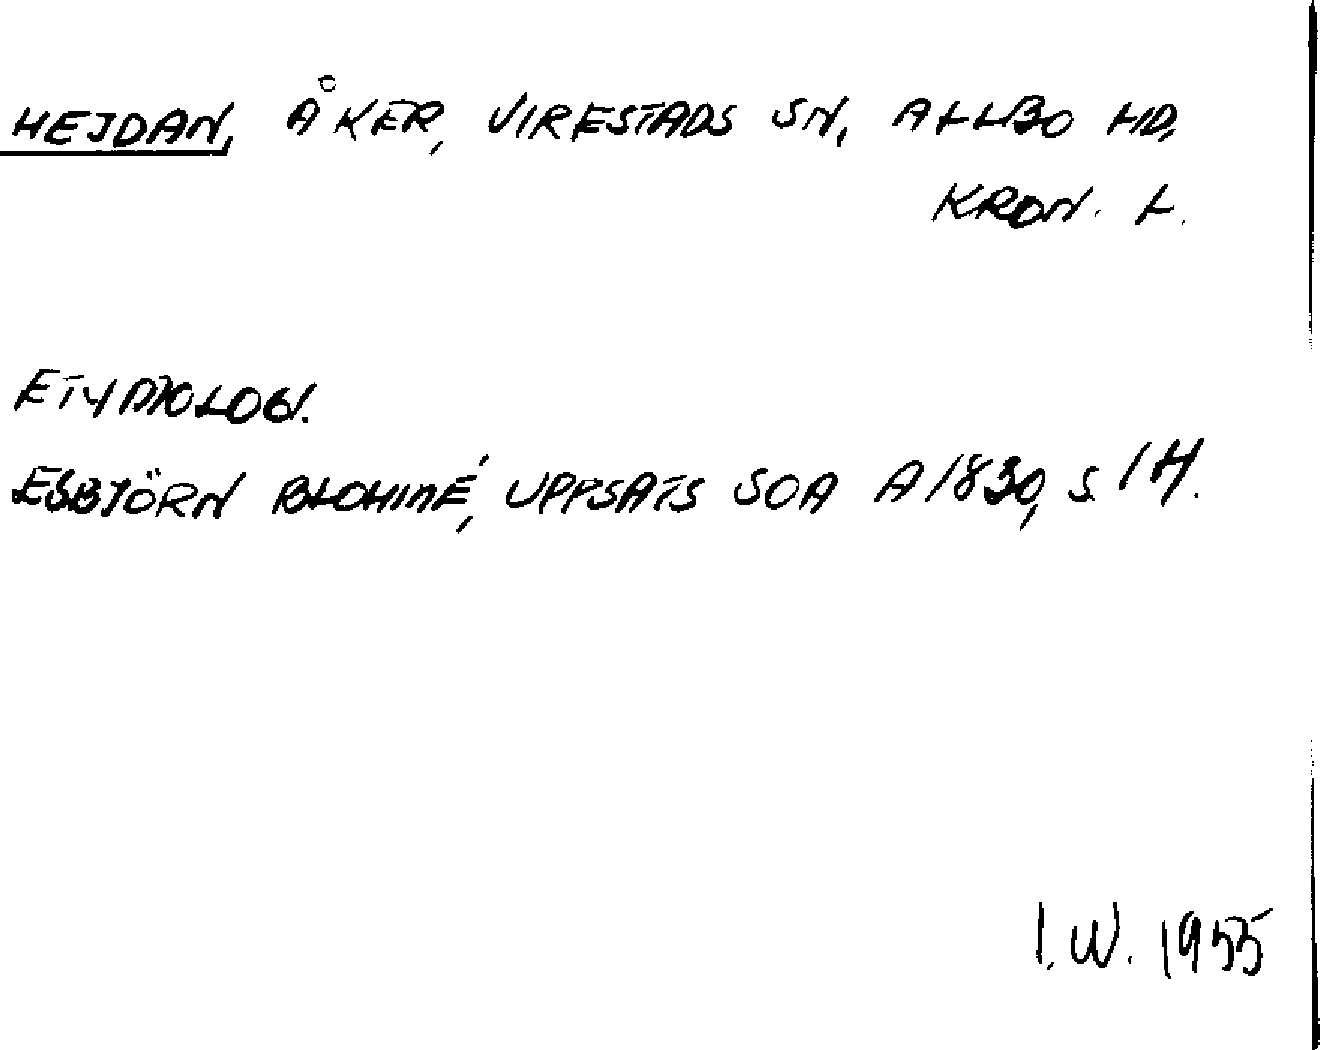 HEJDAN, ÅKER, VIRESTADS SN, ALLBO HD,
KRON. L.
ETYMOLOGI.
ESBJÖRN BLOHMÉ, UPPSATS SOA A1830, S. 14.
I. W. 1955